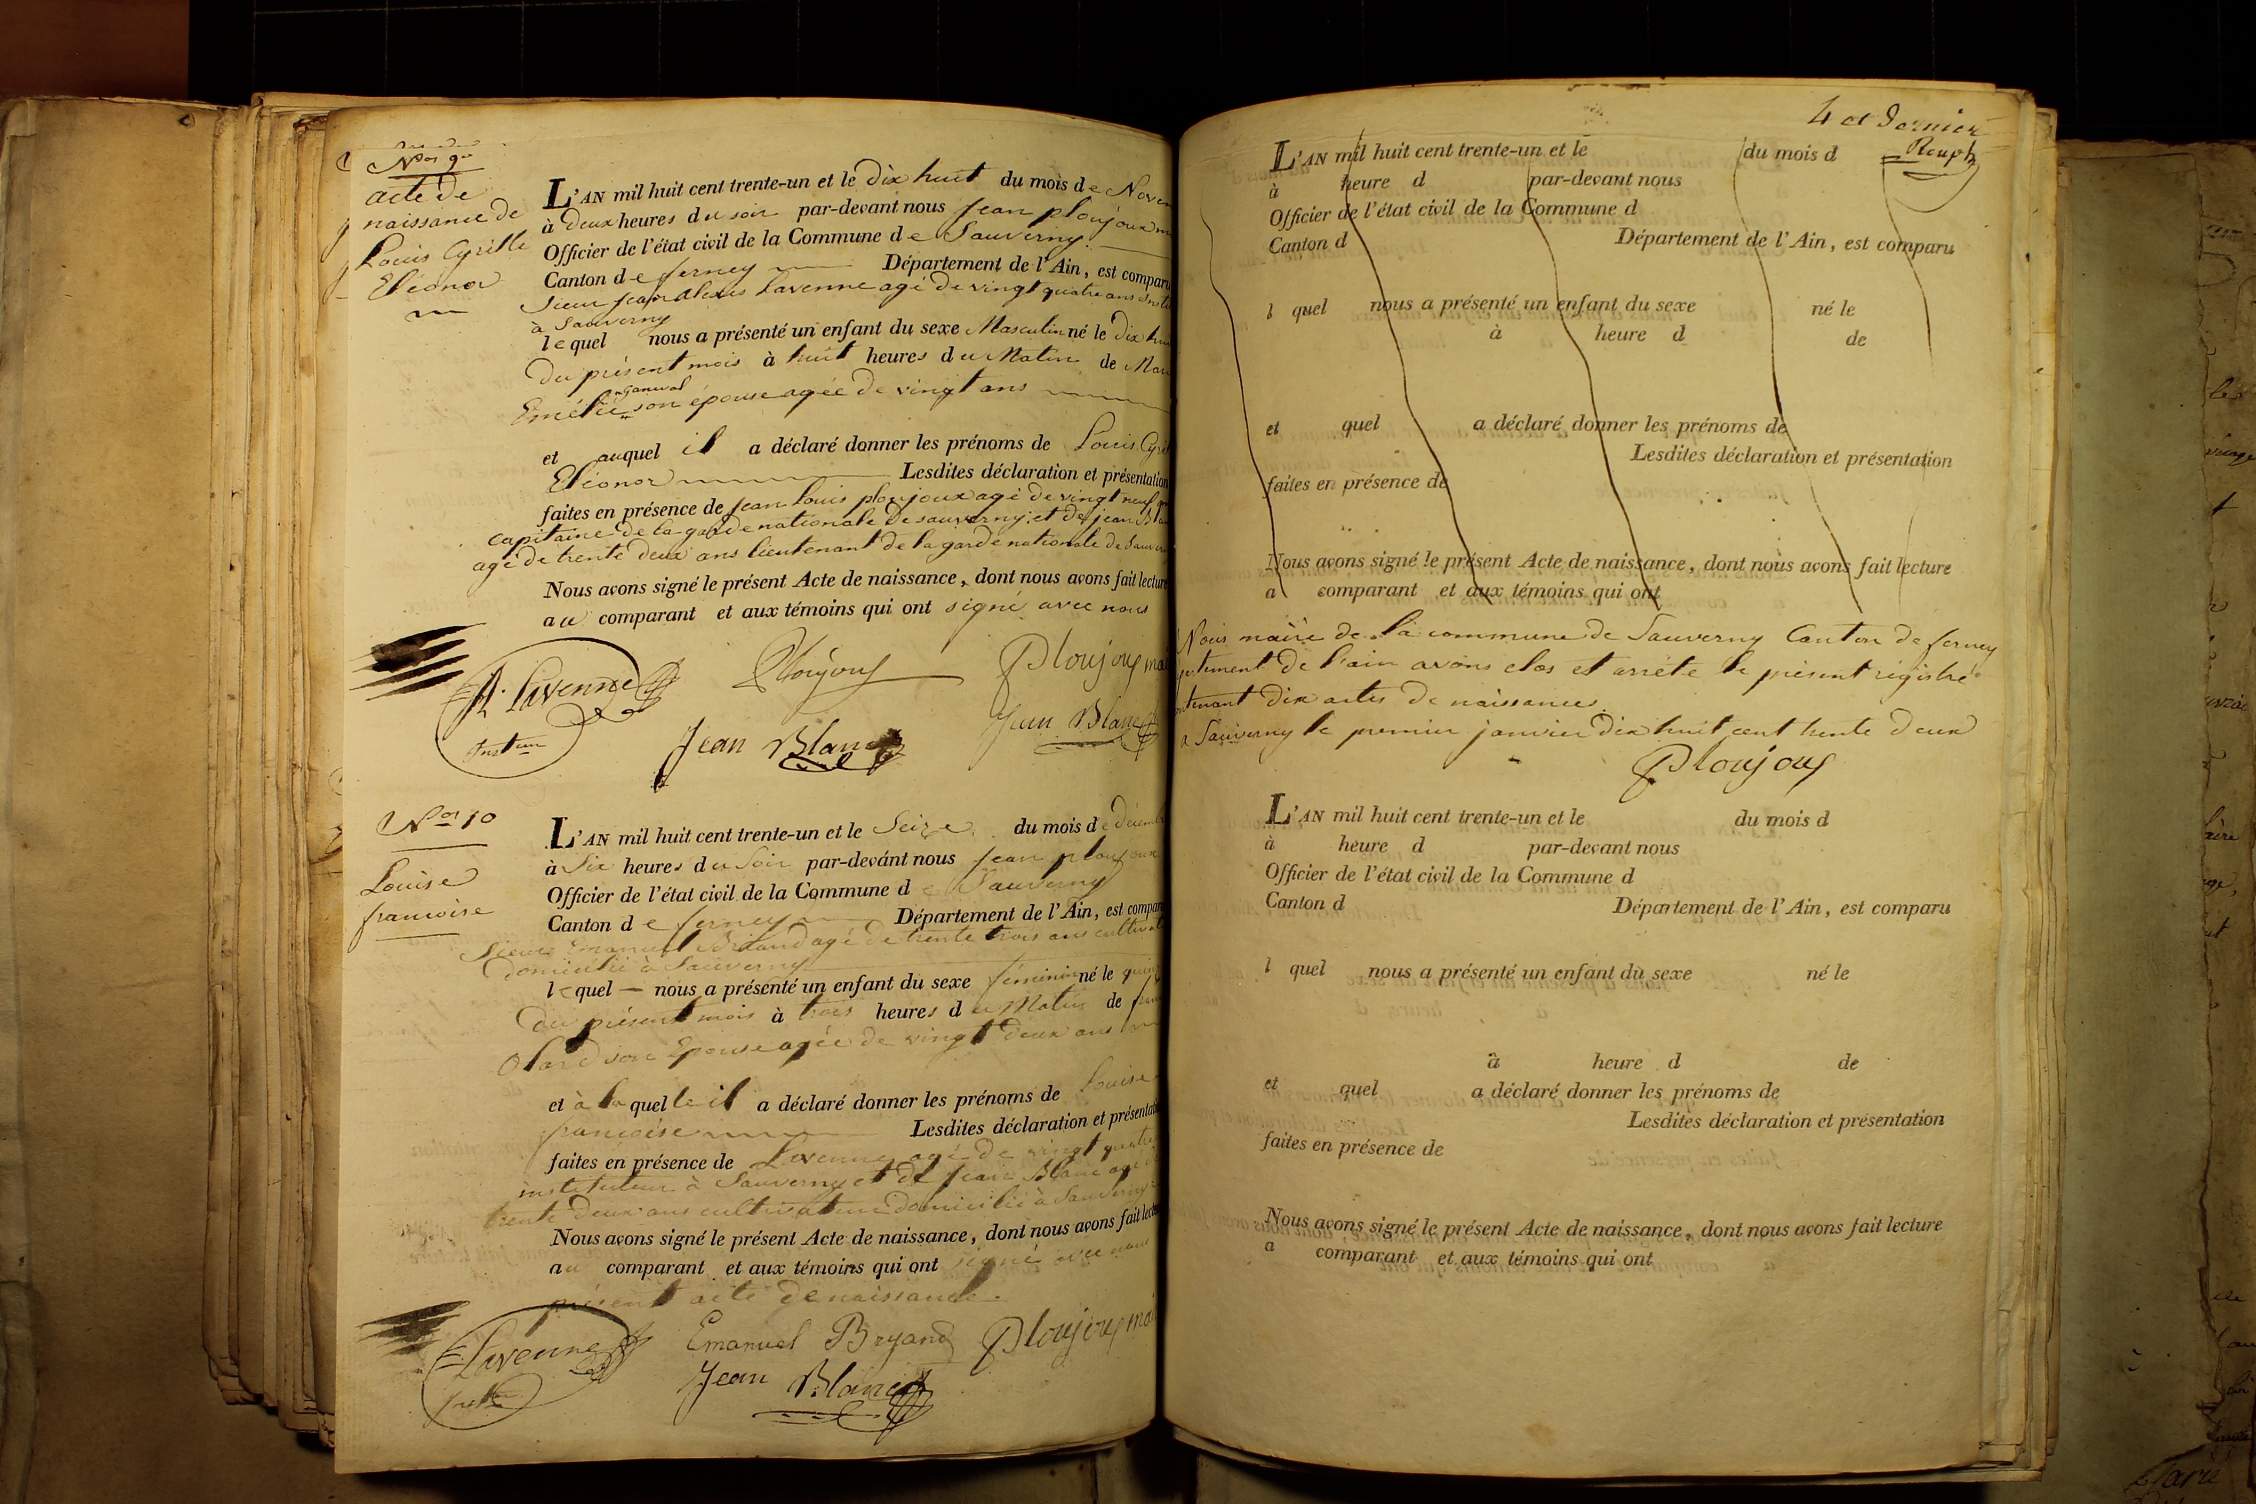 Nos 9e
acte de
naissance de
Louis Cyrille
Eléonor
L'AN mil huit cent trente-un et le dix huit du mois de Novem
à deux heures du soir par-devant nous Jean ploujoux m
Officier de l'état civil de la Commune de Sauverny
Canton de ferney Département de l'Ain, est comparu
Sieur Jean alexis Lavenne agé de vingt quatre ans Insti
à Sauverny
lequel nous a présenté un enfant du sexe Masculin né le dix hu
du présent mois à huit heures du Matin de Mar
ganeval
Emélie son épouse agée de vingt ans
et auquel il a déclaré donner les prénoms de Louis Cyril
Eléonor Lesdites déclaration et présentation
faites en présence de Jean Louis ploujoux agé de vingt neuf ans
capitaine de la garde nationale de sauverny et de jean Bla
agé de trente deux ans lieutenant de la garde nationale de Sauver
Nous avons signé le présent Acte de naissance, dont nous avons fait lecture
au comparant et aux témoins qui ont signé avec nous
A. Lavenne Ploujoux Ploujoux mai
Insteur Jean Blanc Jean Blanc
No 10
Louise
francoise
L'AN mil huit cent trente-un et le Seize du mois de décemb
à Six heures du Soir par-devant nous Jean ploujoux
Officier de l'état civil de la Commune de Sauverny
Canton de ferney Département de l'Ain, est compar
Sieur Emanuel Briand agé de trente trois ans cultivat
domicilié à Sauverny
lequel nous a présenté un enfant du sexe féminin né le quin
du présent mois à trois heures du Matin de fran
son Epouse agée de vingt deux ans
et à laquelle il a déclaré donner les prénoms de Louise
francoise Lesdites déclaration et présentati
faites en présence de Lavenne agé de vingt quatre
instituteur à Sauverny et de Jean Blanc agé d
trente deux ans cultivateur domicilié à Sauverny
Nous avons signé le présent Acte de naissance, dont nous avons fait lectu
au comparant et aux témoins qui ont signé avec nous
présent acte de naissance.
Lavenne Emanuel Bryand Ploujoux mai
Jean Blanc
4 et dernier
Rouph
L'AN mil huit cent trente-un et le du mois d
à heure d par-devant nous
Officier de l'état civil de la Commune d
Canton d Département de l'Ain, est comparu
l quel nous a présenté un enfant du sexe né le
à heure d de
et quel a déclaré donner les prénoms de
Lesdites déclaration et présentation
faites en présence de
Nous avons signé le présent Acte de naissance, dont nous avons fait lecture
a comparant et aux témoins qui ont
Nous maire de la commune de Sauverny Canton de ferney
partement de l'ain avons clos et arrété le présent régistre
ntenant dix actes de naissances.
a Sauverny le premier janvier dix huit cent trente deux
Ploujoux
L'AN mil huit cent trente-un et le du mois d
à heure d par-devant nous
Officier de l'état civil de la Commune d
Canton d Département de l'Ain, est comparu
l quel nous a présenté un enfant du sexe né le
à heure d de
et quel a déclaré donner les prénoms de
Lesdites déclaration et présentation
faites en présence de
Nous avons signé le présent Acte de naissance, dont nous avons fait lecture
a comparant et aux témoins qui ont